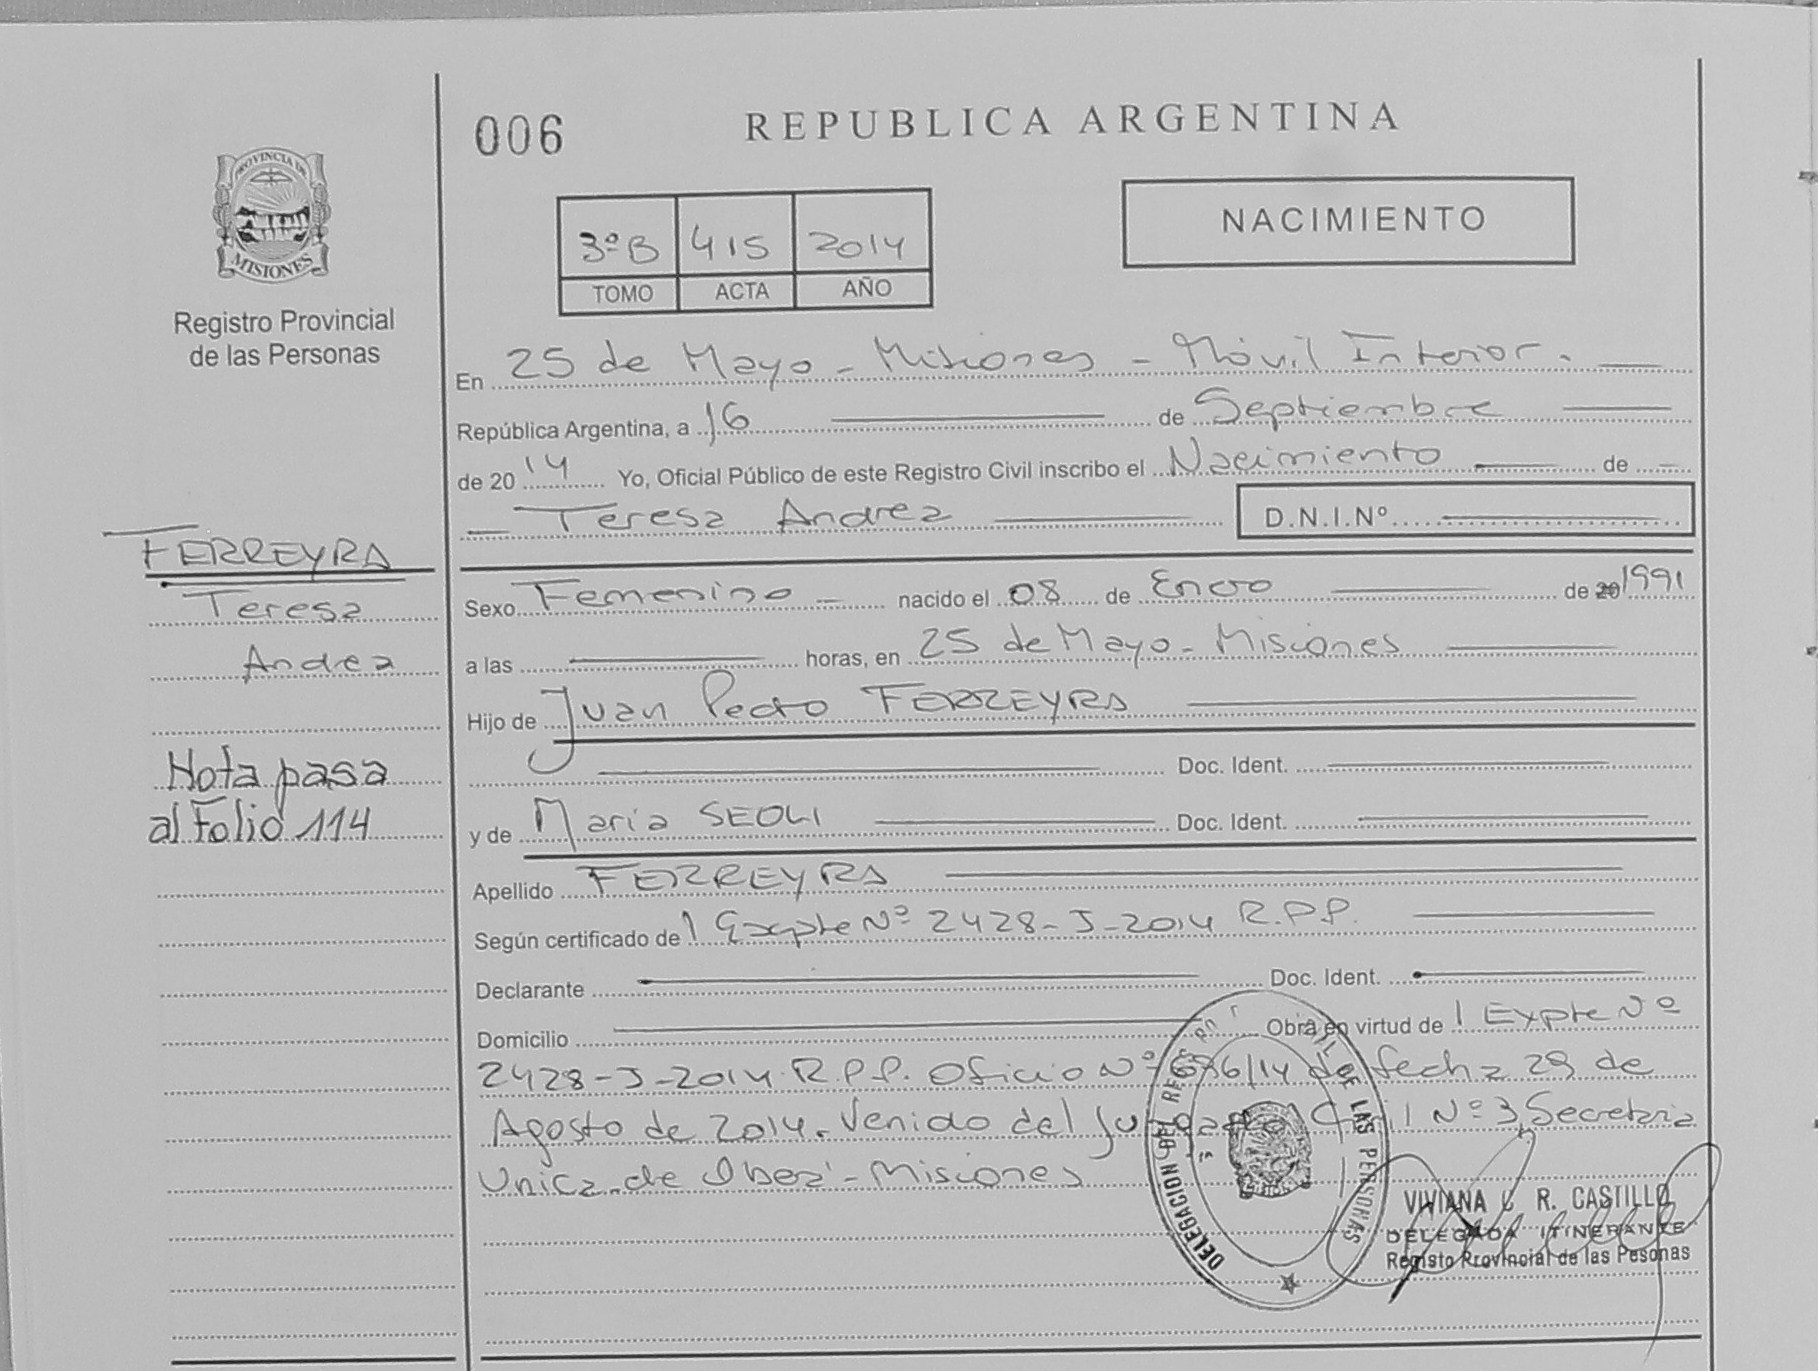 006
REPUBLICA ARGENTINA
PROVINCIA DE
MISIONES
Registro Provincial
de las Personas
3ºB 415 2014
TOMO ACTA AÑO
NACIMIENTO
En 25 de Mayo - Misiones - Móvil Interior.
República Argentina, a 16 de Septiembre
de 2014 Yo, Oficial Público de este Registro Civil inscribo el Nacimiento de
Teresa Andrea D.N.I.Nº
FERREYRA
Teresa
Andrea
Nota pasa
al Folio 114
Sexo Femenino nacido el 08 de Enero de 20 1991
a las horas, en 25 de Mayo - Misiones
Hijo de Juan Pedro FERREYRA
Doc. Ident.
y de Maria Doc. Ident.
Apellido FERREYRA
Según certificado de 1 Expte Nº 2428-J-2014 R.P.P.
Declarante Doc. Ident.
Domicilio Obra en virtud de 1 Expte Nº
2428-J-2014 R.P.P. Oficio Nº /14 de fecha 29 de
Agosto de 2014. Venido del Juzgado Civil Nº 3, Secretaria
Unica de Oberá - Misiones
DELEGACION DEL DE LAS PERSONAS
VIVIANA R. CASTILLO
DELEGADA ITINERANTE
Registo Provincial de las Pesonas